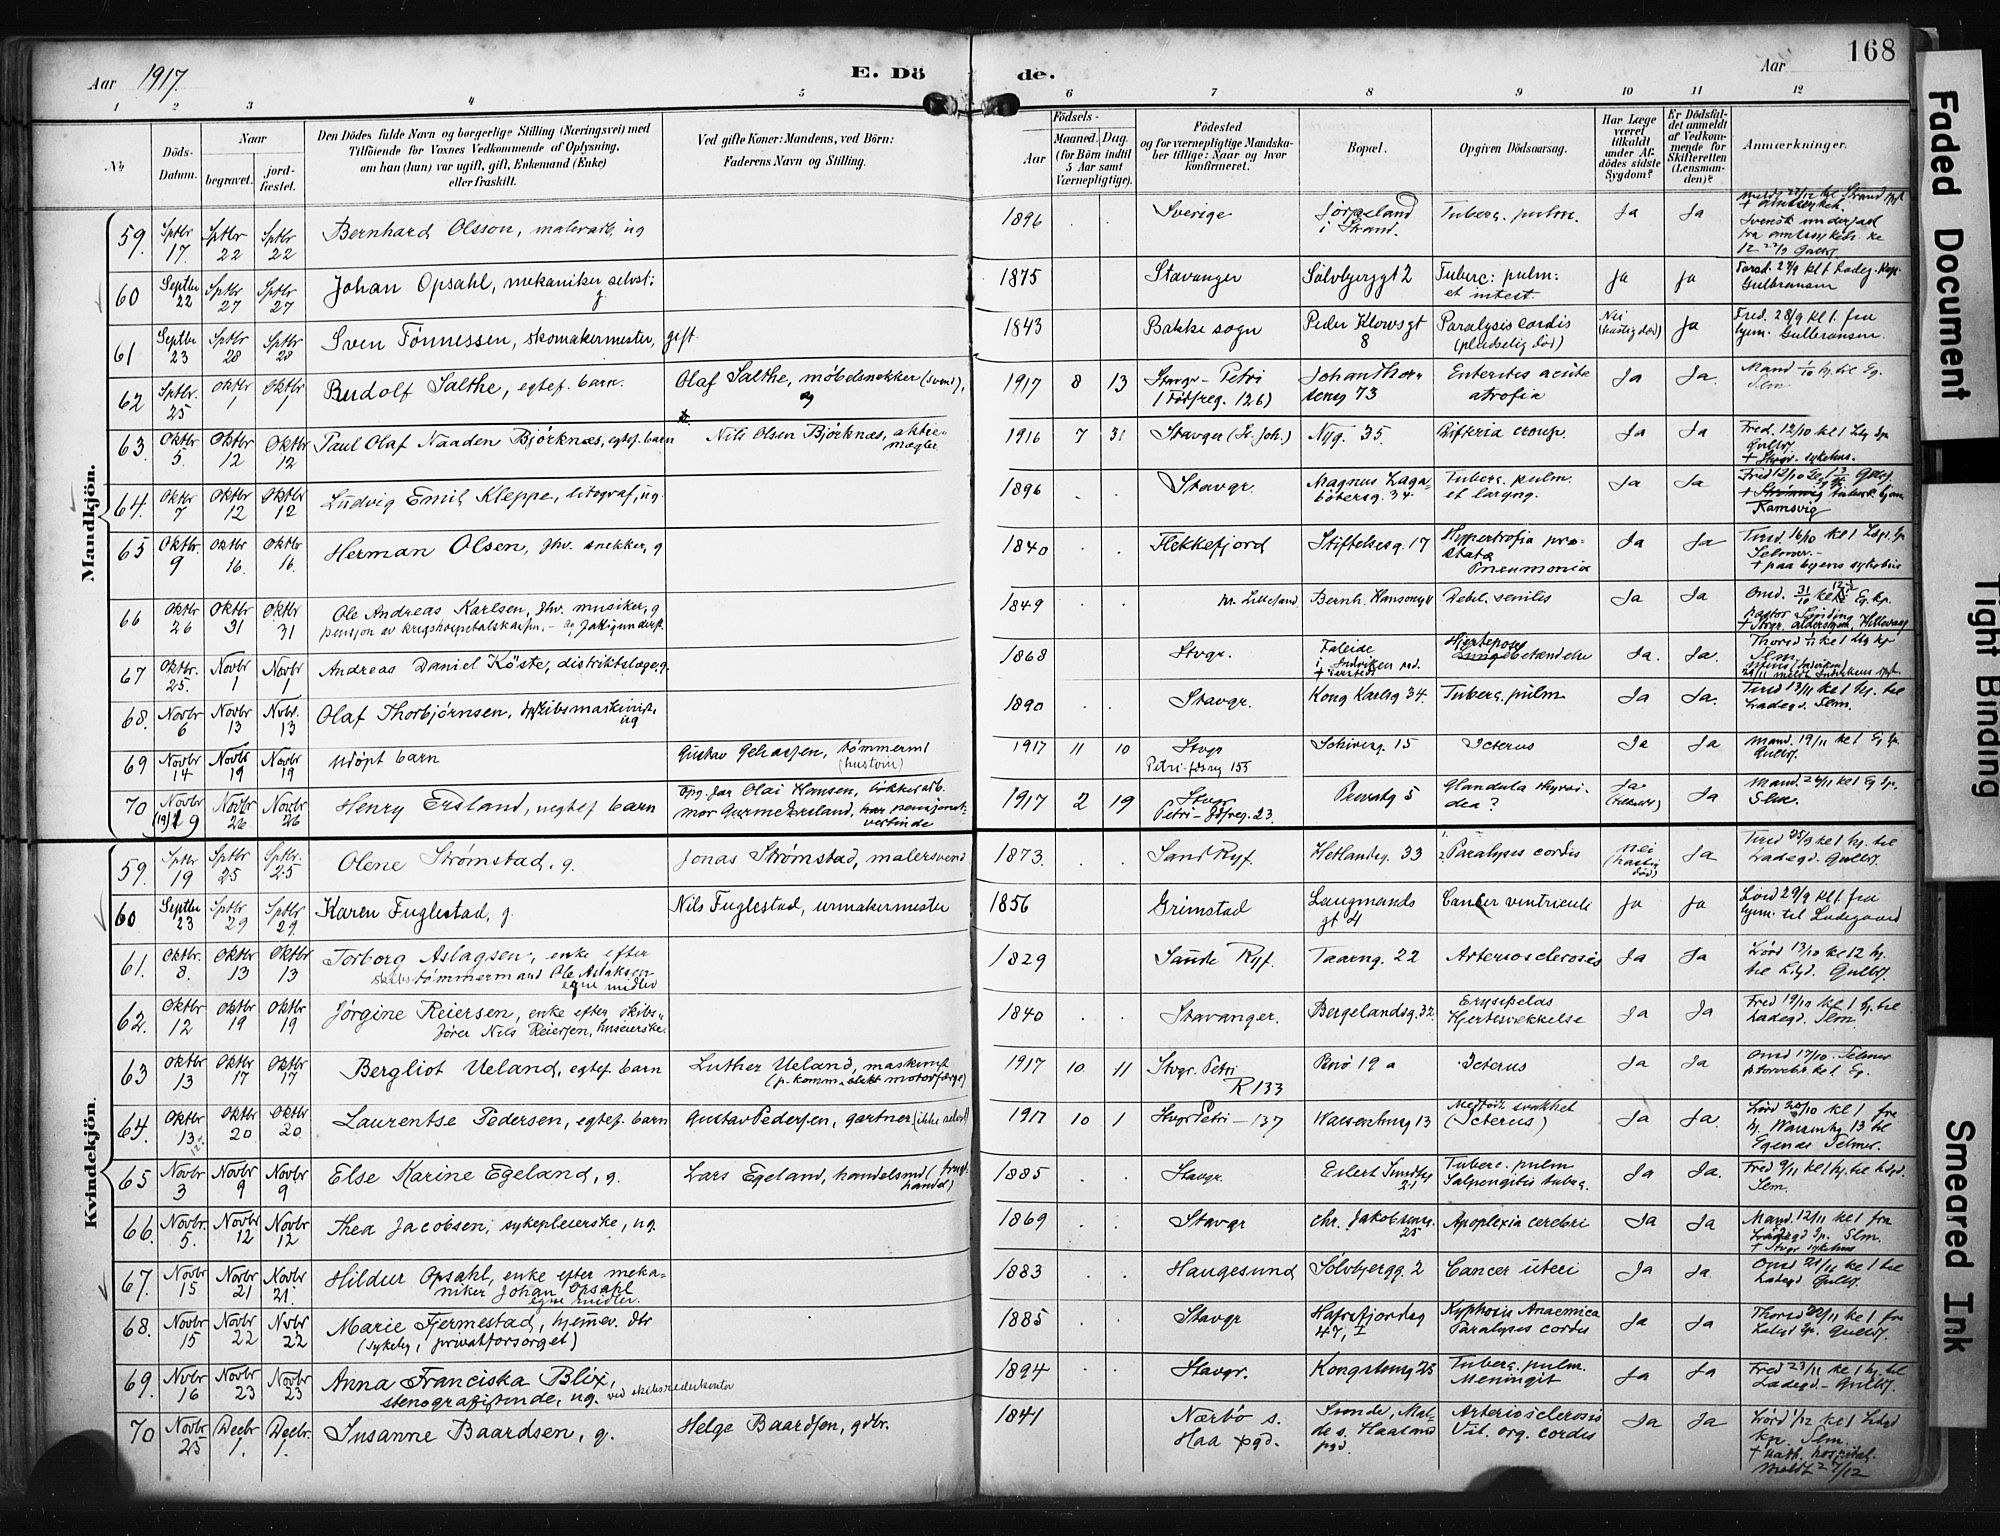 168
Aar 1917.
E. Dö de.
Aar
1 2 3 4 5 6 7 8 9 10 11 12
No.
Döds-Datum.
Naar
begravet.
jord-fæstet.
Den Dödes fulde Navn og borgerlige Stilling (Næringsvei) med
Tilföiende for Voxnes Vedkommende af Oplysning,
om han (hun) var ugift, gift, Enkemand (Enke)
eller fraskilt.
Ved gifte Koner: Mandens, ved Börn:
Faderens Navn og Stilling.
Födsels-
Aar
Maaned.
Dag.
(for Börn indtil
5 Aar samt
Værnepligtige).
Födested
og for værnepligtige Mandska-
ber tillige: Naar og hvor
konfirmeret.
Bopæl.
Opgiven Dödsaarsag.
Har Læge
været
tilkaldt
under Af-
dödes sidste
Sygdom?
Er Dödsfal-
det anmeldt
af Vedkom-
mende for
Skifteretten
(Lensman-
den)?
Anmærkninger.
Mandkjön.
59. Sptbr 17. Sptbr 22 Sptbr 22 Bernhard Olsson, malerarb. ug 1896 Sverige Jørpeland i Strand. Tuberc. pulm. Ja Ja
60 Septbr 22 Sptbr 27 Sptbr 27 Johan Opsahl, mekaniker selvst: g 1875 Stavanger Sølvberggt 2 Tuberc: pulm: et intest. Ja Ja Torsd. 27/9 kl 1 Ladeg. Kap. Gulbransen
61 Septbr 23 Sptbr 28 Sptbr 28 Sven Tønnessen, skomakermester, gift. 1843 Bakke sogn Peder Klowsgt 8 Paralysis cordis (pludselig død) Nei (hastig død) Ja Fred. 28/9 kl 1. fra hjem. Gulbransen.
62 Sptbr. 25 Oktbr 1 Oktbr 1 Rudolf Salthe, egtef. barn. Olaf Salthe, møbelsnekker (svend), 1917 8 13 Stavgr - Petri (Fødsreg. 126) Johan Thorsensg 73 Enteritis acuta atrofia Ja Ja. Mand 1/10 hj. til Eg. Selm.
63. Oktbr 5. Oktbr 12 Oktbr 12 Paul Olaf Naaden Bjórknæs, egtef. barn Nils Olsen Bjórknæs, aktie-mægler 1916 7 31 Stavger (St. Joh.) Nyg. 35. Difteria croup. Ja Ja Fred. 12/10 kl 1
64. Oktbr 7 Oktbr 12 Oktbr 12 Ludvig Emil Kleppe, litograf, ug. 1896 Stavgr. Magnus Lagabøtersg. 34 Tuberc. pulm. et laryng. Ja Ja Ramsvig
65 Oktbr. 9 Oktbr 16. Oktbr 16. Herman Olsen, fhv. snekker, g 1840 Flekkefjord Stiftelsesg. 17 Hypertrofia prostata Pneumonia Ja Ja Tirsd 16/10 kl 1 + paa byens sykehus
66 Oktbr 26 Oktbr 31 Oktbr 31 Ole Andreas Karlsen, fhv. musiker, g 1849 Bernh. Hansensg 4 Debil. senilis Ja Ja
67 Oktbr. 25. Novbr 1 Novbr 1 Andreas Daniel Köste, distriktslæge, g. 1868 Stvgr. Faleide Ja. Ja.
68. Novbr 6 Novbr 13 Nvbr. 13 Olaf Thorbjórnsen, skibsmaskinist, ug 1890 Stavgr. Kong Karlsg 34. Tuberc. pulm Ja Ja. Tirsd 13/11 kl 1 hj. til Ladegd. Selm.
69 Novbr 14 Novbr 19 Novbr 19 udøpt barn Gustav tømmermd 1917 11 10 Stvgr Petri 155 15 Icterus Ja Ja Mand. 19/11 kl 1
70 Novbr 19 Novbr 26 Novbr 26 Henry Ersland, uegtef barn Olai Hansen, 1917 2 19 Stvgr Petri - 23. 5 Glandula thyreoidea? Ja Ja Mand. 26/11 kl 1
Kvindekjön.
59. Sptbr 19 Sptbr 25 Sptbr. 25 Olene Strømstad, g. Jonas Strømstad, malersvend 1873. Sand Ryf. Hetlandsg. 33 Paralysis cordis nei (hastig død) Ja Tirsd 25/9 kl 1. hj. til Ladegd. Gulbr.
60 Septbr 23 Sptbr 29 Sptbr 29 Karen Fuglestad, g. Nils Fuglestad, urmakermester 1856 Grimstad Langmands gt 4 Cancer ventriculi Ja Ja Lörd 29/9 kl 1. fra hjem. til Ladegaard
61. Oktbr. 8. Oktbr 13 Oktbr 13 Torborg Aslagsen, enke efter skibstømmermand Ole Aslaksen egne midler 1829 Sande Ryf. Taarng. 22 Arteriosclerosis Ja Ja Lørd 13/10 kl 12 hj. til Gulbr.
62. Oktbr 12 Oktbr 19 Oktbr 19 Jørgine Reiersen, enke efter skibs-fører Nils Reiersen, huseierske. 1840 Stavanger. Bergelandsg. 32. Erysipelas Hjertesvækkelse Ja Ja Fred 19/10 kl 1 hj. til Ladegd. Selm.
63 Oktbr 13 Oktbr 17 Oktbr 17 Bergliot Ueland, egtef barn Luther Ueland, maskinist 1917 10 11 Stvgr. Petri R 133 Penø 19 a Icterus Ja Ja Onsd 17/10
64. Oktbr 13 Oktbr 20 Oktbr 20 Laurentse Pedersen, egtef. barn Gustav Pedersen, gartner (ikke selvst) 1917 10 1 Stvgr Petri - 137 13 Medfødt svakhet (Icterus) Ja Ja. Lørd 20/10 kl 1 fra
65 Novbr 3 Novbr 9 Novbr 9 Else Karine Egeland, g. Lars Egeland, handelsmd 1885 Stavgr. Eilert Sundtsg 21 Tuberc. pulm Salpengitis tuberc. Ja Ja. Fred 9/11 kl 1 hj. til Selm.
66. Novbr. 5. Novbr 12 Novbr 12 Thea Jacobsen, sykepleierske, ug. 1869 Stavgr Chr. Jakobsensg. 25 Apoplexia cerebri Ja Ja Mand. 12/11 kl 1 fra Selm. + Stvgr sykehus
67. Novbr 15 Novbr 21 Novbr 21. Hildur Opsahl, enke efter mekaniker Johan Opsahl egne midler. 1883 Haugesund Sølvbergg. 2 Cancer uteri Ja Ja Onsd 21/11 kl 1 til Ladegd Gulbr.
68. Novbr 15 Novbr 22 Nvbr 22 Marie Fjermestad, hjemmev. dtr (sykelig, privatforsørget) 1885 Stavgr Hafrsfjordsg 47, I Kyphosis Anaemica Paralysis cordis Ja Ja Thorsd 22/11 kl 1 fra Gulbr.
69. Nvbr 16 Novbr 23 Novbr 23 Anna Franciska Blix, stenografistinde, ug. ved skibsrederkontor 1894 Stavgr. Kongstensg 28 Tuberc. pulm. Meningit Ja Ja Fred 23/11 kl 1 hj. til Ladegd - Gulbr.
70 Novbr 25 Decbr 1. Decbr 1. Susanne Baardsen, g. Helge Baardsen, gdbr. 1841 Nærbø s. Haa pgd. Sunde, Malde s. Haaland pgd. Arteriosclerosis Vit. org. cordis Ja Ja Lørd 1/12 kl 1 Selm. + Kath. hospital. meldt 27/12
Faded Document
Tight Binding
Smeared Ink